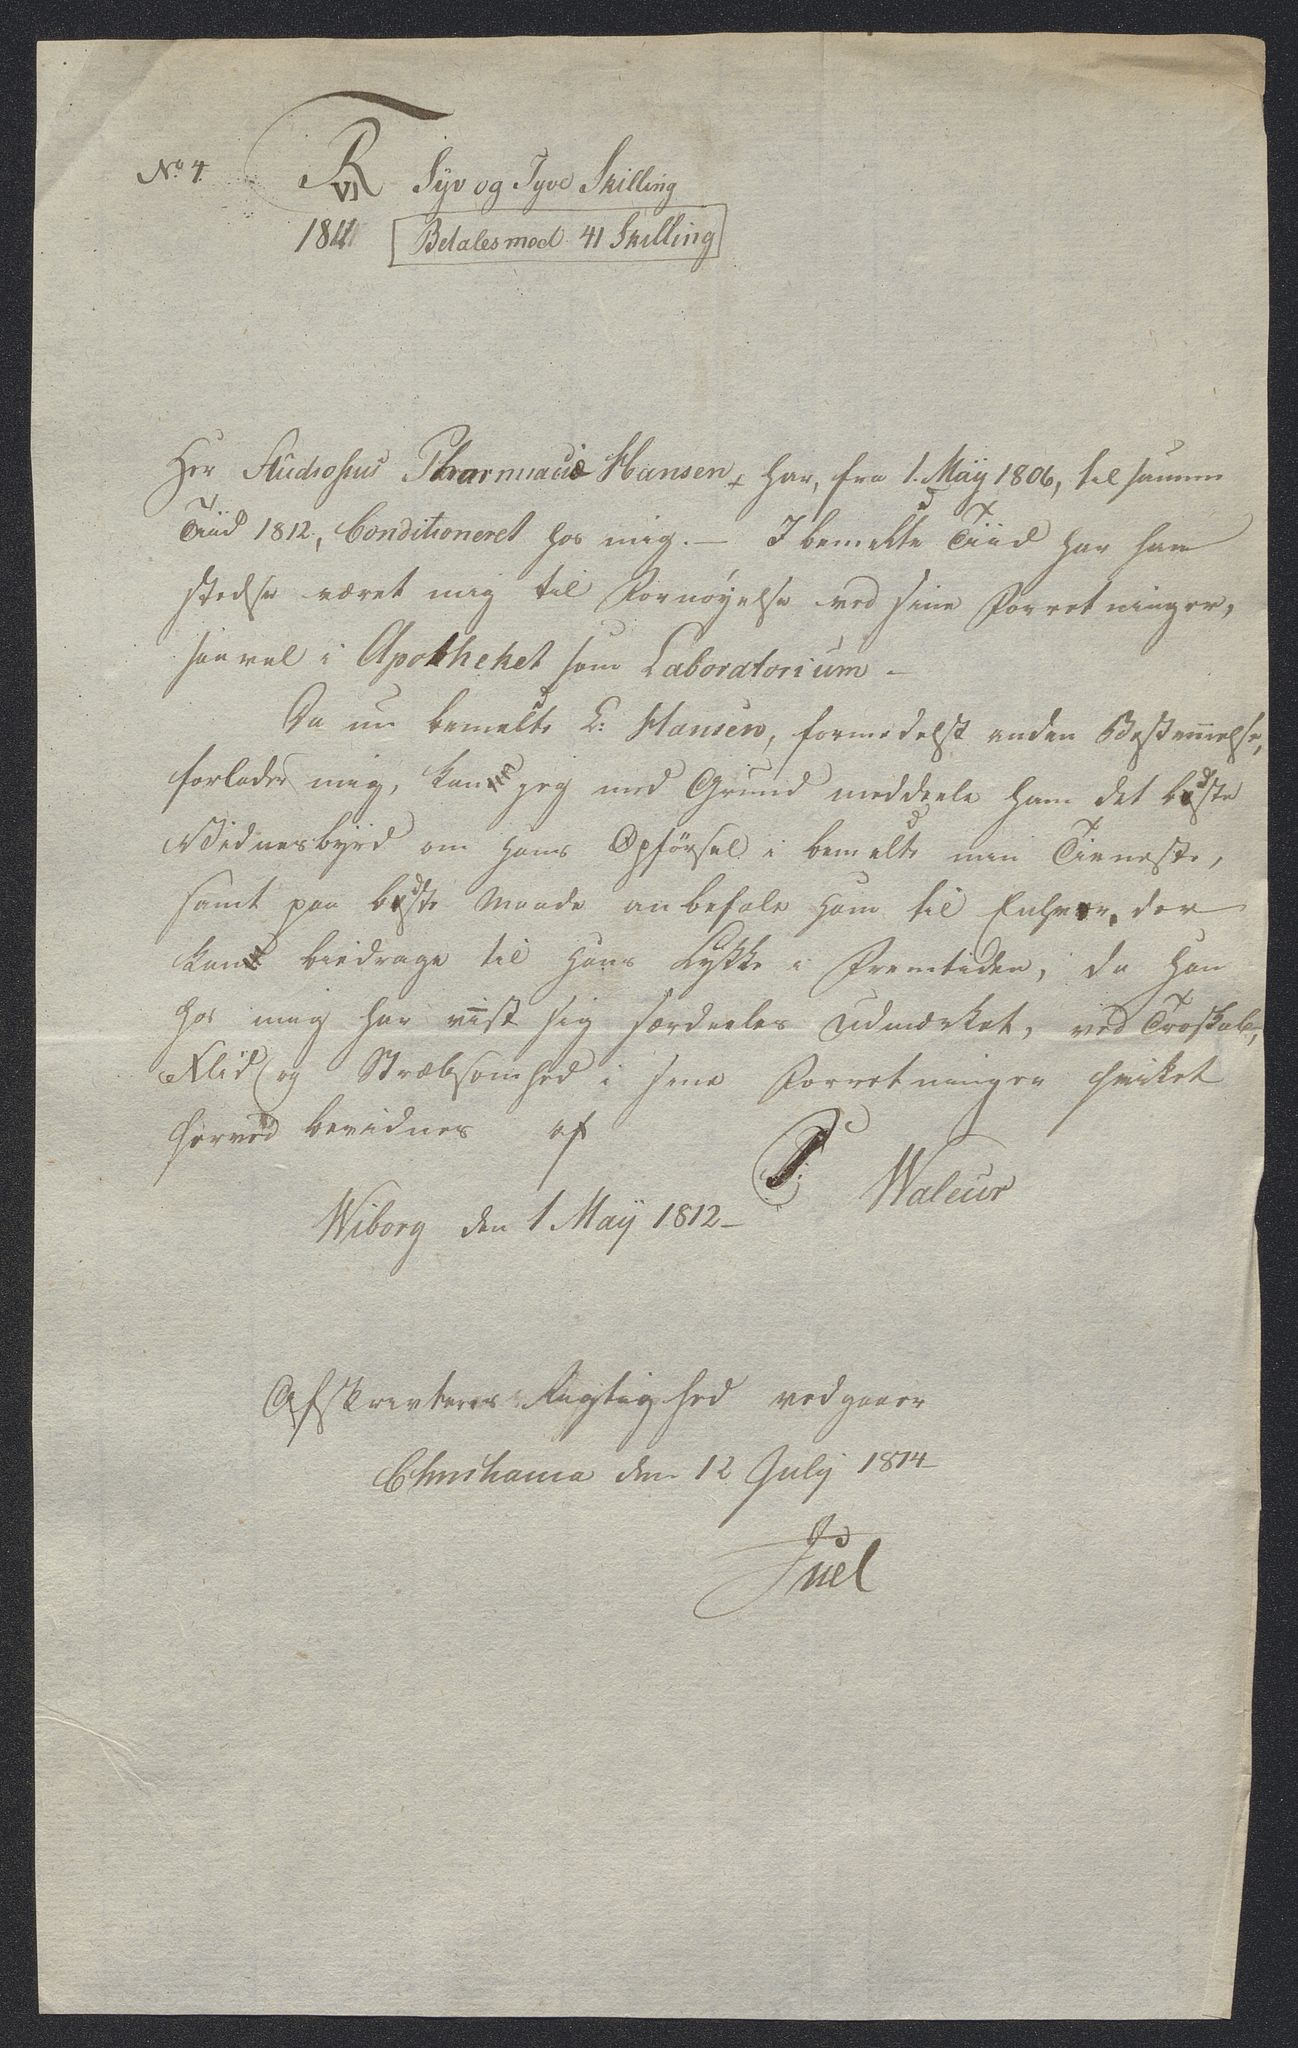 No 4.
FR VI Syv og Tyve Skilling
1811 Betales med 41 Skilling
Her Studiosus Pharmaciæ Hansen har, fra 1. Maÿ 1806, til samme
Tiid 1812, Conditioneret hos mig. — I bemelte Tiid har han
stedse været mig til Fornöyelse ved sine Forretninger,
saavel i Apotheket som Laboratorium —
Da nu bemelte L: Hansen, formedelst anden Bestemelse,
forlader mig, kan jeg med Grund meddeele ham det bedste
Vidnesbyrd om hans Opförsel i bemelte min Tieneste,
samt paa bedste Maade anbefale ham til Enhver, der
kan biedrage til hans Lykke i Fremtiden, da han
hos mig har vist sig særdeeles udmærket, ved Troskab,
Flid og Stræbsomhed i sine Forretninger hvilket
herved bevidnes af
P: Waleur
Wiborg den 1 Maÿ 1812 —
Afskrivtens Rigtighed vedgaaer
Christiania den 12 July 1814
Juel